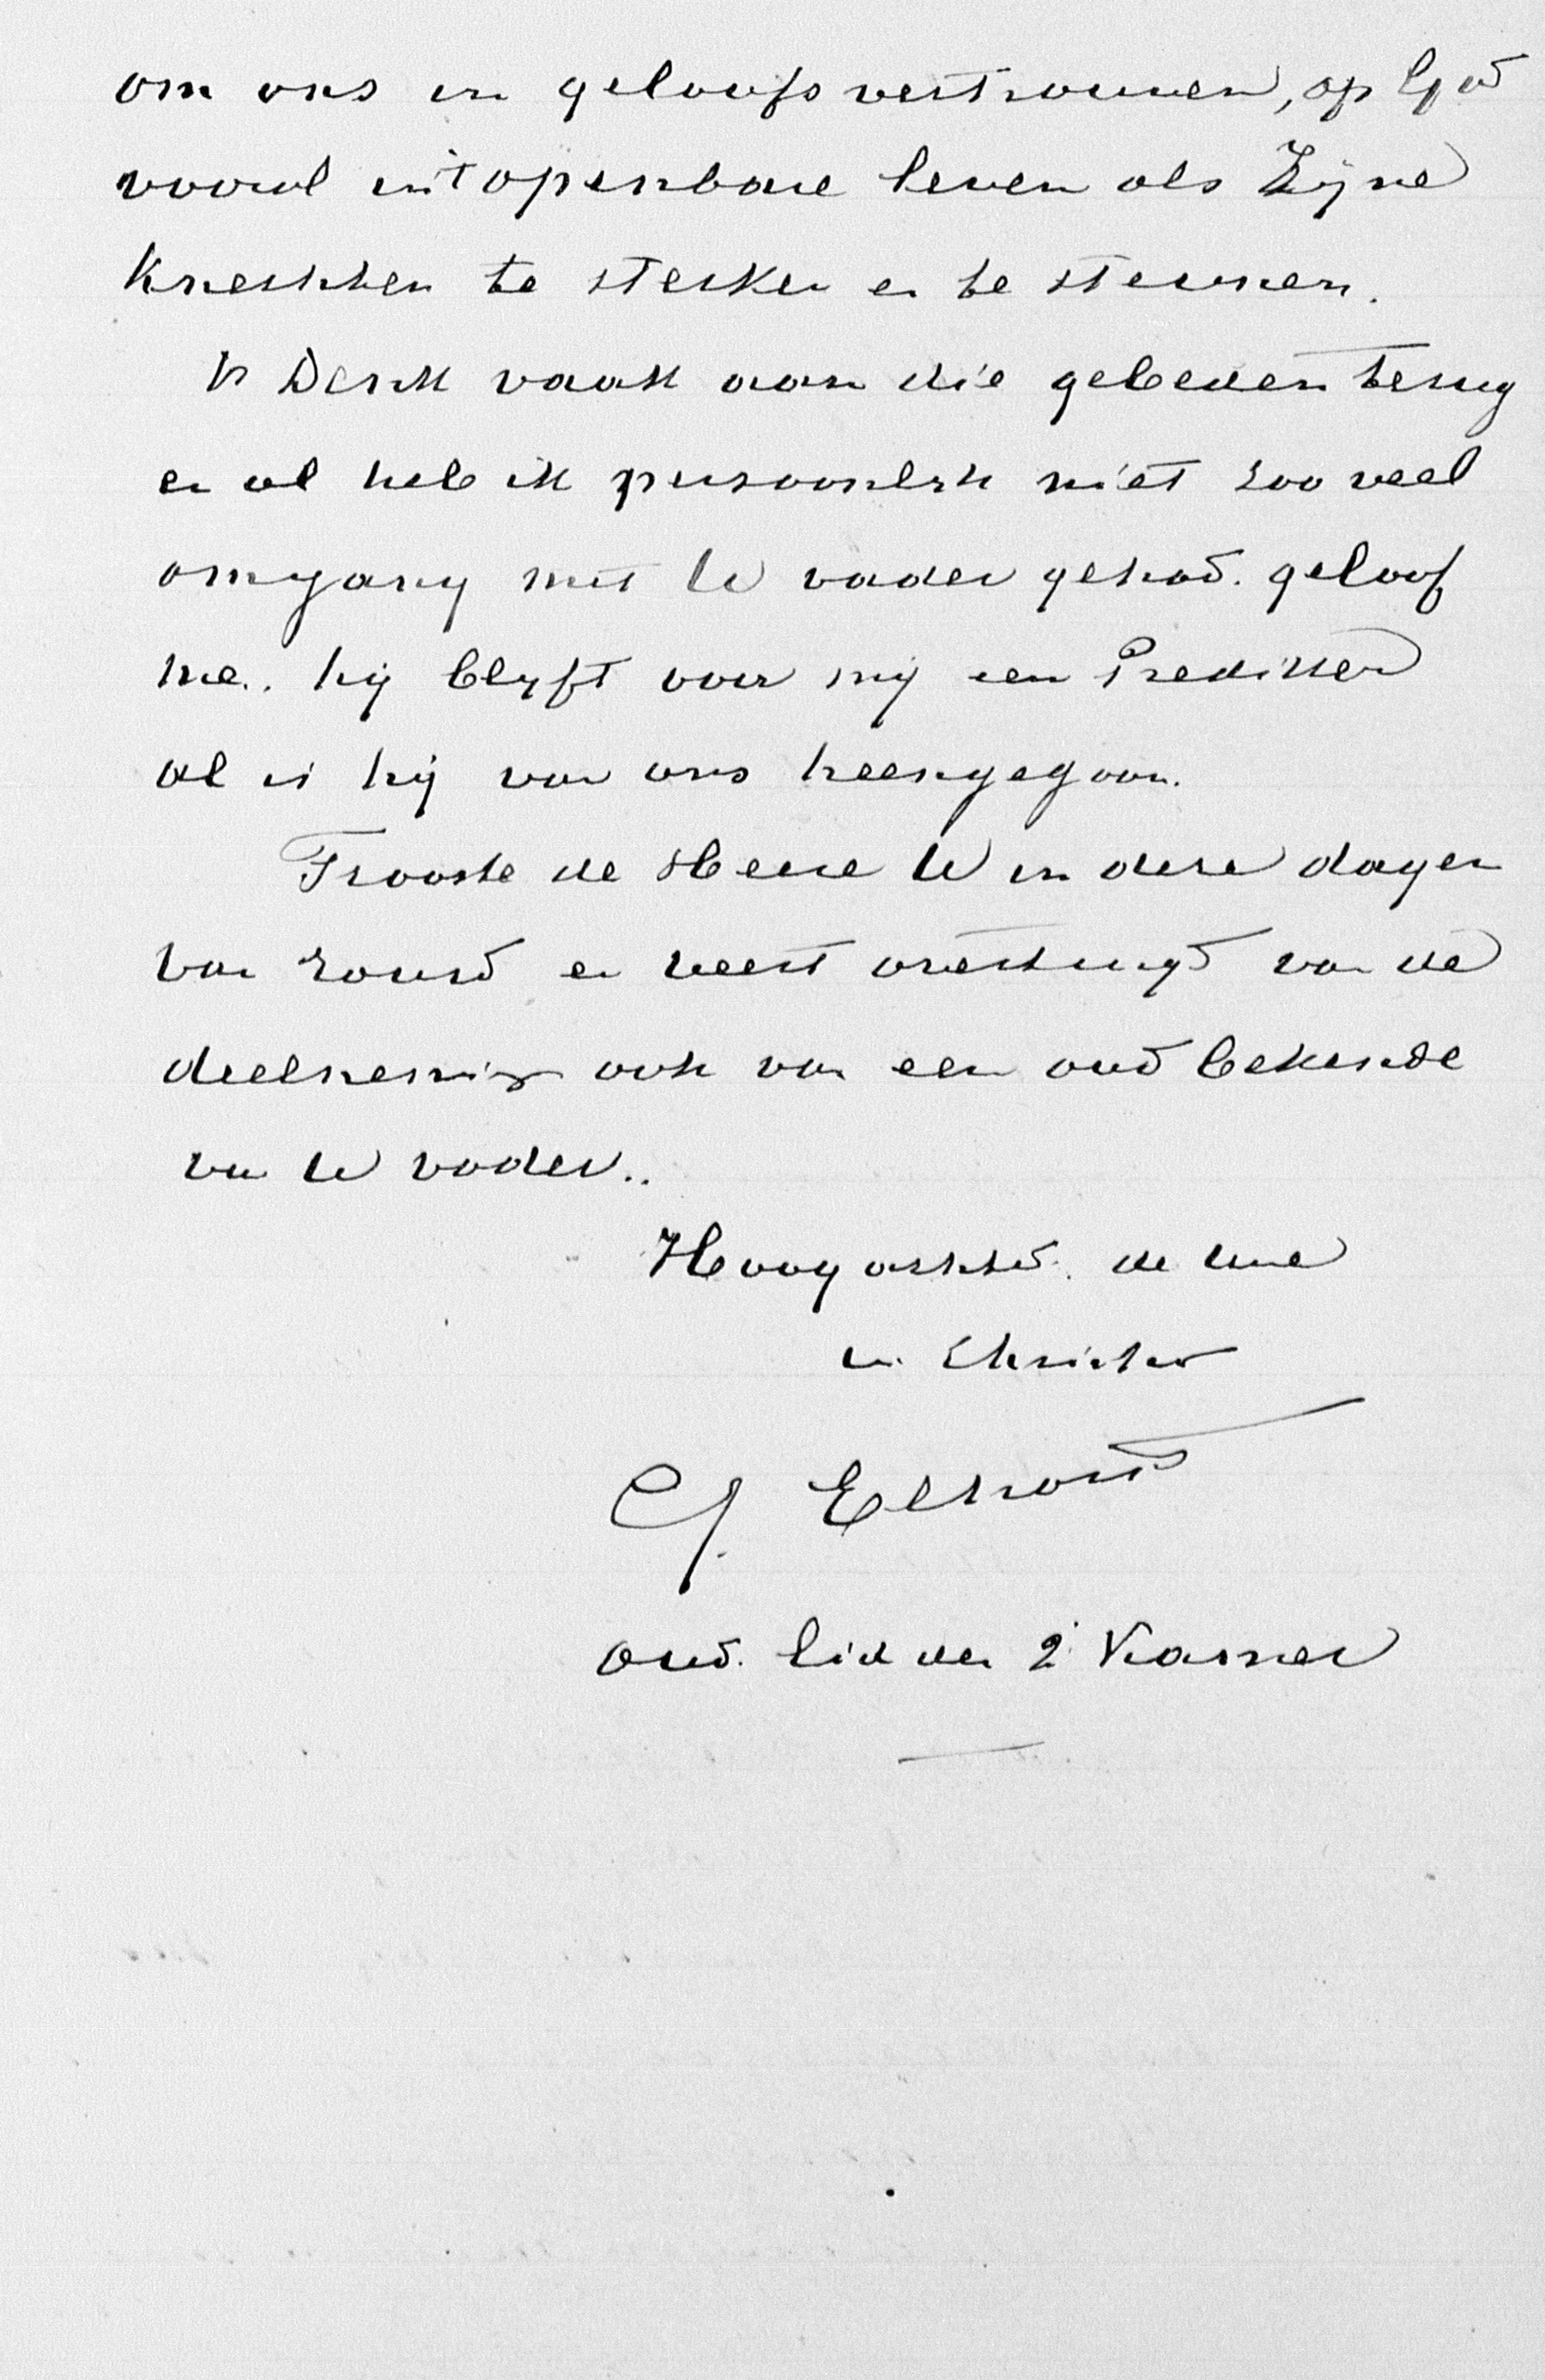 om ons in geloofsvertrouwen, op God
vooral in 't openbare leven als Zijne
Knechten te sterken en te steunen.
Ik Denk vaak aan die gebeden terug
en al heb ik persoonlijk niet zoo veel
omgang met Uw vader gehad. geloof
me.. hij blijft voor mij een Prediker
al is hij van ons heengegaan.
Trooste de Heere U in deze dagen
van rouw en weest overtuigd van de
deelneming ook van een oud bekende
van Uw vader..
Hoogachtend. de Uwe
in Christus
C J. Elhorst
oud. lid der 2e Kamer